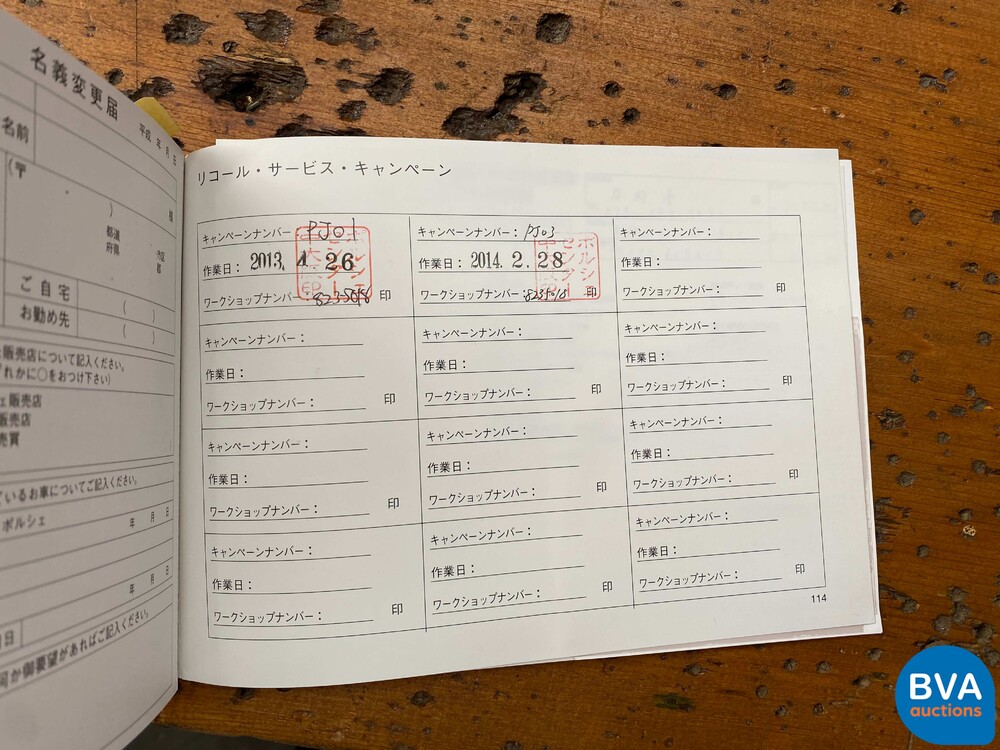 名義変更届
平成 年 月 日
名前
(〒
)
様
都道
府県
市区
郡
ご自宅
( )
お勤め先
( )
販売店について記入ください。
れかに○をおつけ下さい)
ェ販売店
販売店
売買
ているお車についてご記入ください。
ポルシェ
年 月 日
年 月 日
日
何か御要望があればご記入ください。
リコール・サービス・キャンペーン
キャンペーンナンバー: PJ01
作業日: 2013. 4. 26
ワークショップナンバー: 8235018 印
キャンペーンナンバー: PJ03
作業日: 2014. 2. 28
ワークショップナンバー: 8235018 印
ポルシェ
センター
キャンペーンナンバー:
作業日:
ワークショップナンバー: 印
キャンペーンナンバー:
作業日:
ワークショップナンバー: 印
キャンペーンナンバー:
作業日:
ワークショップナンバー: 印
キャンペーンナンバー:
作業日:
ワークショップナンバー: 印
キャンペーンナンバー:
作業日:
ワークショップナンバー: 印
キャンペーンナンバー:
作業日:
ワークショップナンバー: 印
キャンペーンナンバー:
作業日:
ワークショップナンバー: 印
キャンペーンナンバー:
作業日:
ワークショップナンバー: 印
キャンペーンナンバー:
作業日:
ワークショップナンバー: 印
キャンペーンナンバー:
作業日:
ワークショップナンバー: 印
114
BVA
auctions